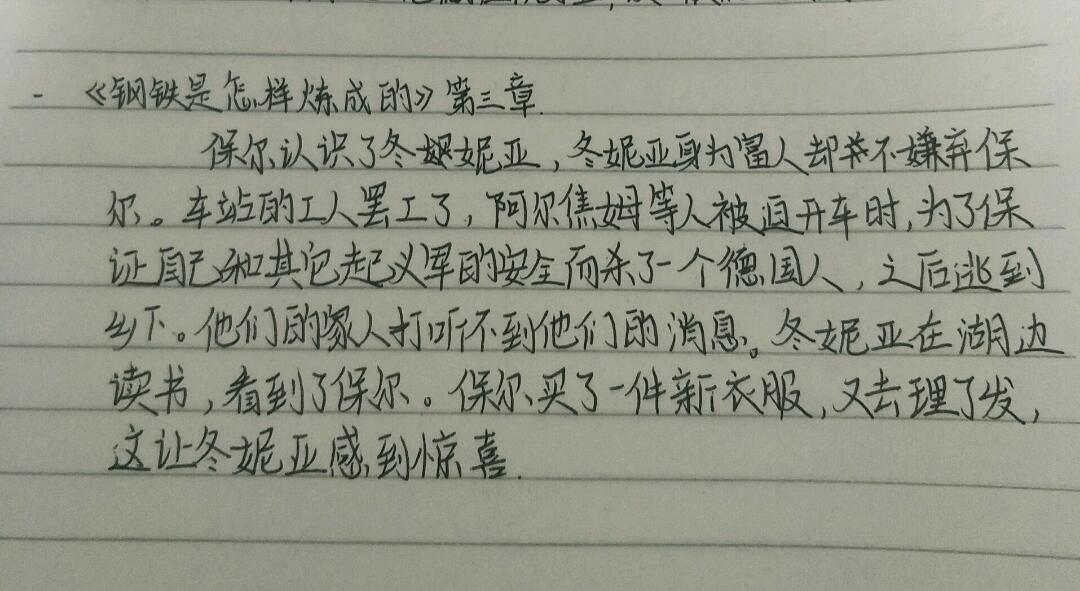 - 《钢铁是怎样炼成的》第三章.
保尔认识了冬妮亚,冬妮亚身为富人却并不嫌弃保
尔。车站的工人罢工了,阿尔焦姆等人被迫开车时,为了保
证自己和其它起义军的安全而杀了一个德国人,之后逃到
乡下。他们的家人打听不到他们的消息。冬妮亚在湖边
读书,看到了保尔。保尔买了一件新衣服,又去理了发,
这让冬妮亚感到惊喜.